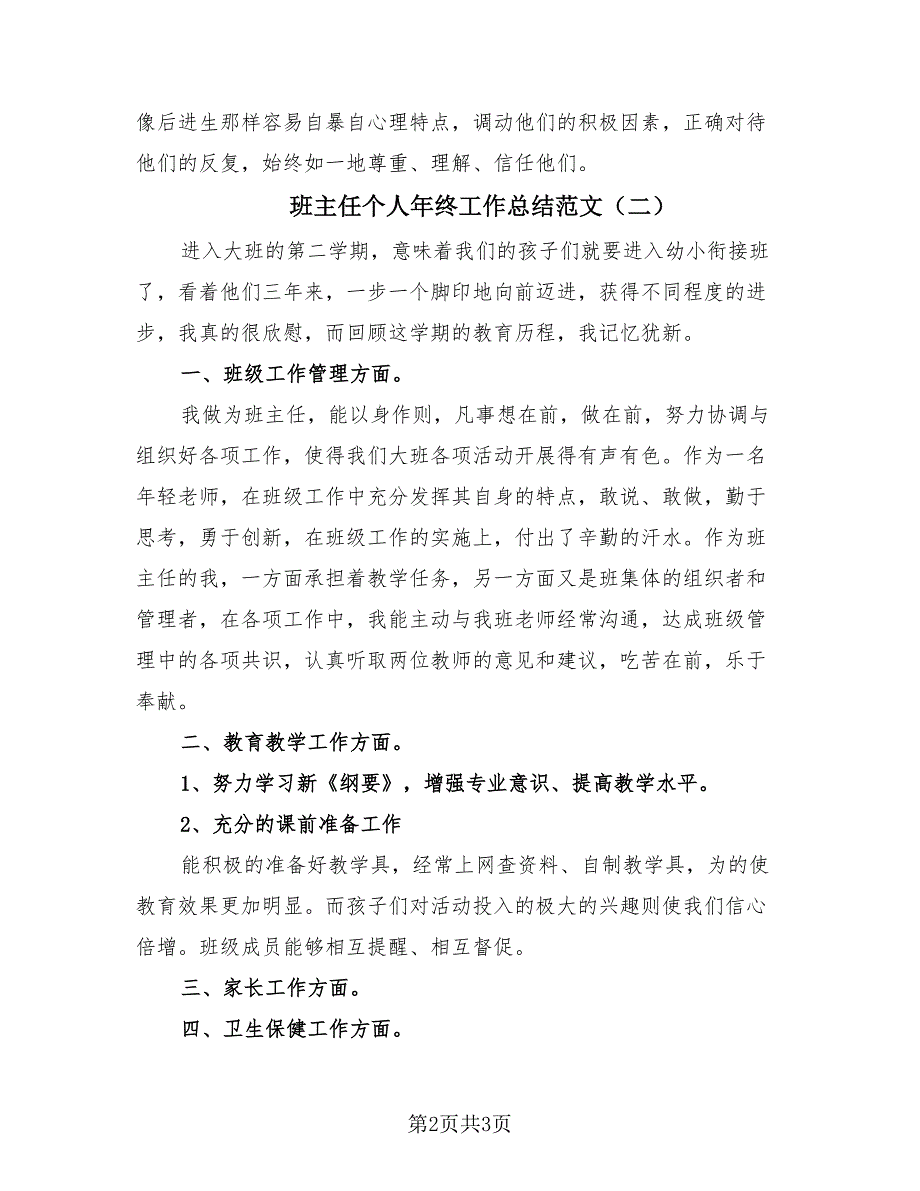 像后进生那样容易自暴自心理特点，调动他们的积极因素，正确对待
他们的反复，始终如一地尊重、理解、信任他们。
班主任个人年终工作总结范文（二）
进入大班的第二学期，意味着我们的孩子们就要进入幼小衔接班
了，看着他们三年来，一步一个脚印地向前迈进，获得不同程度的进
步，我真的很欣慰，而回顾这学期的教育历程，我记忆犹新。
一、班级工作管理方面。
我做为班主任，能以身作则，凡事想在前，做在前，努力协调与
组织好各项工作，使得我们大班各项活动开展得有声有色。作为一名
年轻老师，在班级工作中充分发挥其自身的特点，敢说、敢做，勤于
思考，勇于创新，在班级工作的实施上，付出了辛勤的汗水。作为班
主任的我，一方面承担着教学任务，另一方面又是班集体的组织者和
管理者，在各项工作中，我能主动与我班老师经常沟通，达成班级管
理中的各项共识，认真听取两位教师的意见和建议，吃苦在前，乐于
奉献。
二、教育教学工作方面。
1、努力学习新《纲要》，增强专业意识、提高教学水平。
2、充分的课前准备工作
能积极的准备好教学具，经常上网查资料、自制教学具，为的使
教育效果更加明显。而孩子们对活动投入的极大的兴趣则使我们信心
倍增。班级成员能够相互提醒、相互督促。
三、家长工作方面。
四、卫生保健工作方面。
第2页共3页